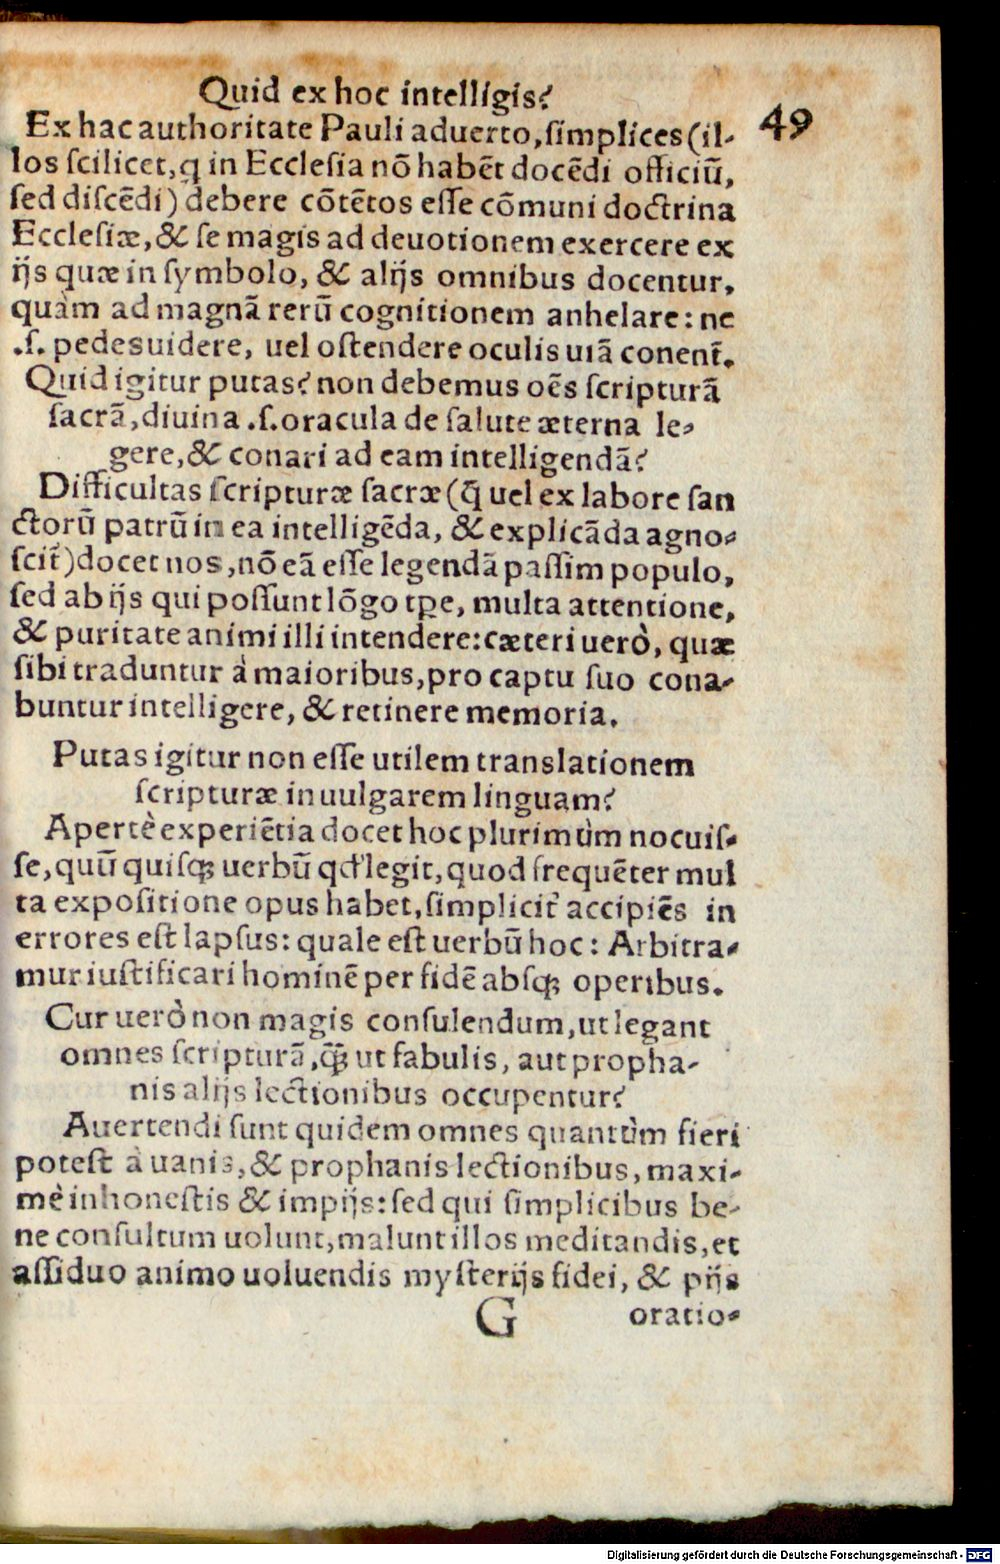 Quid ex hoc intelligis?
49
Ex hac authoritate Pauli aduerto, ſimplices (il-
los ſcilicet, q in Eccleſia nō habēt docēdi officiū,
ſed diſcēdi) debere cōtētos eſſe cōmuni doctrina
Eccleſiæ, & ſe magis ad deuotionem exercere ex
ijs quæ in ſymbolo, & alijs omnibus docentur,
quàm ad magnā rerū cognitionem anhelare: ne
.ſ. pedes uidere, uel oſtendere oculis uiā conent̄.
Quid igitur putas? non debemus oēs ſcripturā
ſacrā, diuina .ſ. oracula de ſalute æterna le-
gere, & conari ad eam intelligendā?
Difficultas ſcripturæ ſacræ (q̄ uel ex labore ſan
ctorū patrū in ea intelligēda, & explicāda agno-
ſcit̄) docet nos, nō eā eſſe legendā paſſim populo,
ſed ab ijs qui poſſunt lōgo tꝑe, multa attentione,
& puritate animi illi intendere: cæteri uerò, quæ
ſibi traduntur à maioribus, pro captu ſuo cona-
buntur intelligere, & retinere memoria.
Putas igitur non eſſe utilem translationem
ſcripturæ in uulgarem linguam?
Apertè experiētia docet hoc plurimùm nocuiſ-
ſe, quū quiſqꝫ uerbū qd' legit, quod frequēter mul
ta expoſitione opus habet, ſimplicit̄ accipiēs in
errores eſt lapſus: quale eſt uerbū hoc: Arbitra-
mur iuſtificari hominē per fidē abſqꝫ operibus.
Cur uerò non magis conſulendum, ut legant
omnes ſcripturā, q̄ꝫ ut fabulis, aut propha-
nis alijs lectionibus occupentur?
Auertendi ſunt quidem omnes quantùm fieri
poteſt à uanis, & prophanis lectionibus, maxi-
mè inhoneſtis & impijs: ſed qui ſimplicibus be-
ne conſultum uolunt, malunt illos meditandis, et
aſſiduo animo uoluendis myſterijs fidei, & pijs
G oratio-
Digitalisierung gefördert durch die Deutsche Forschungsgemeinschaft - DFG